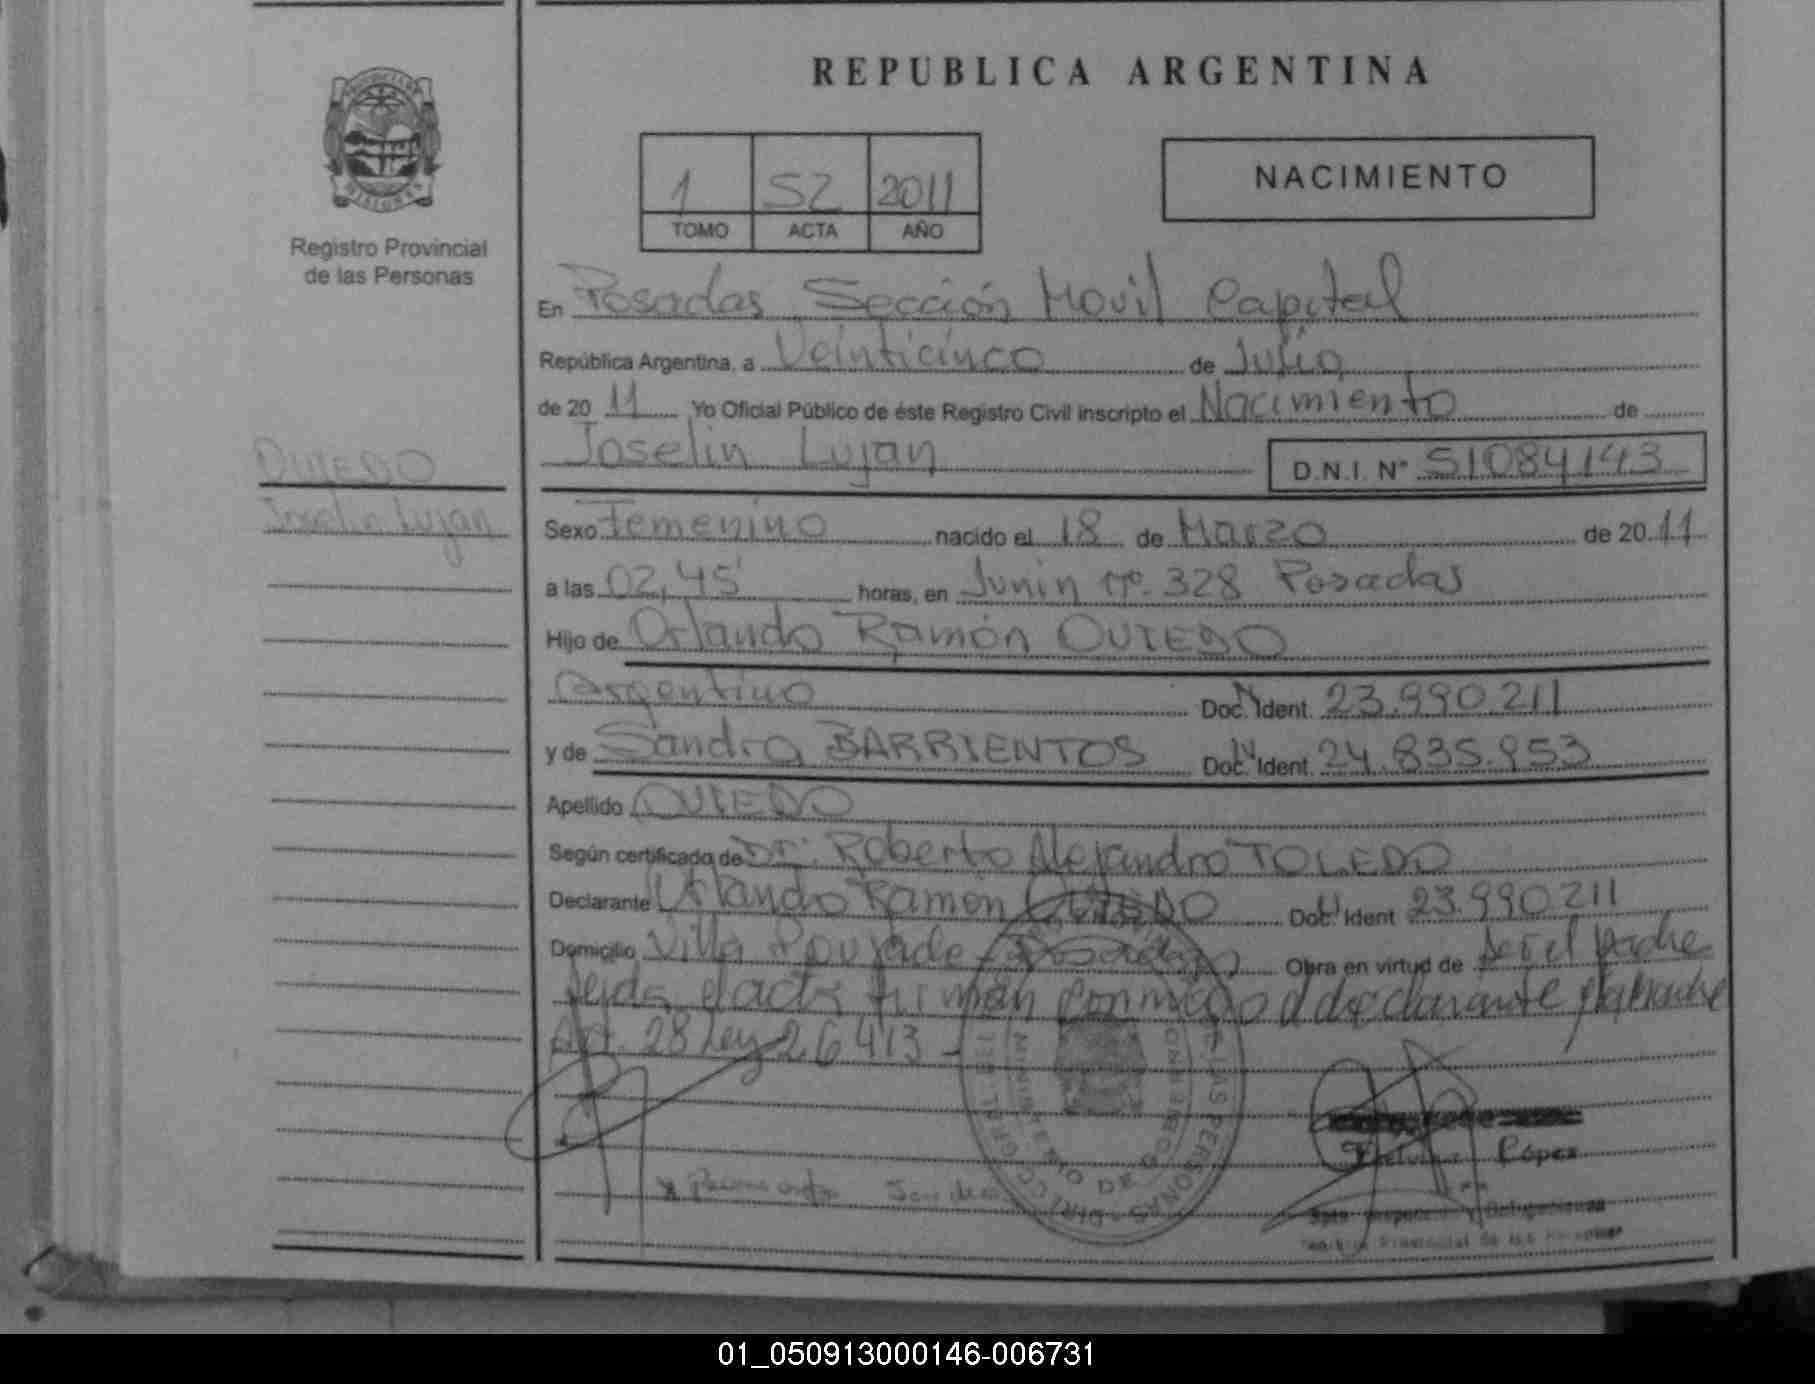 REPUBLICA ARGENTINA
Registro Provincial
de las Personas
1 52 2011
TOMO ACTA AÑO
NACIMIENTO
En Posadas Sección Movil Capital
República Argentina, a Veinticinco de Julio
de 20 11 Yo Oficial Público de éste Registro Civil inscripto el Nacimiento de
Joselin Lujan D.N.I. N° 51084143
OVIEDO
Joselin Lujan
Sexo Femenino nacido el 18 de Marzo de 20 11
a las 02,45' horas, en Junin nº. 328 Posadas
Hijo de Orlando Ramón OVIEDO
Argentino Doc. N Ident. 23.990.211
y de Sandra BARRIENTOS Doc. N Ident. 24.835.953
Apellido OVIEDO
Según certificado de Dr. Roberto Alejandro TOLEDO
Declarante Orlando Ramón OVIEDO Doc. N Ident 23.990.211
Domicilio Villa Poujade - Posadas Obra en virtud de ser el padre
leida el acta firman conmigo el declarante y la madre
Art. 28 Ley 26.413 -
López
Registro Provincial de las Personas
01_050913000146-006731